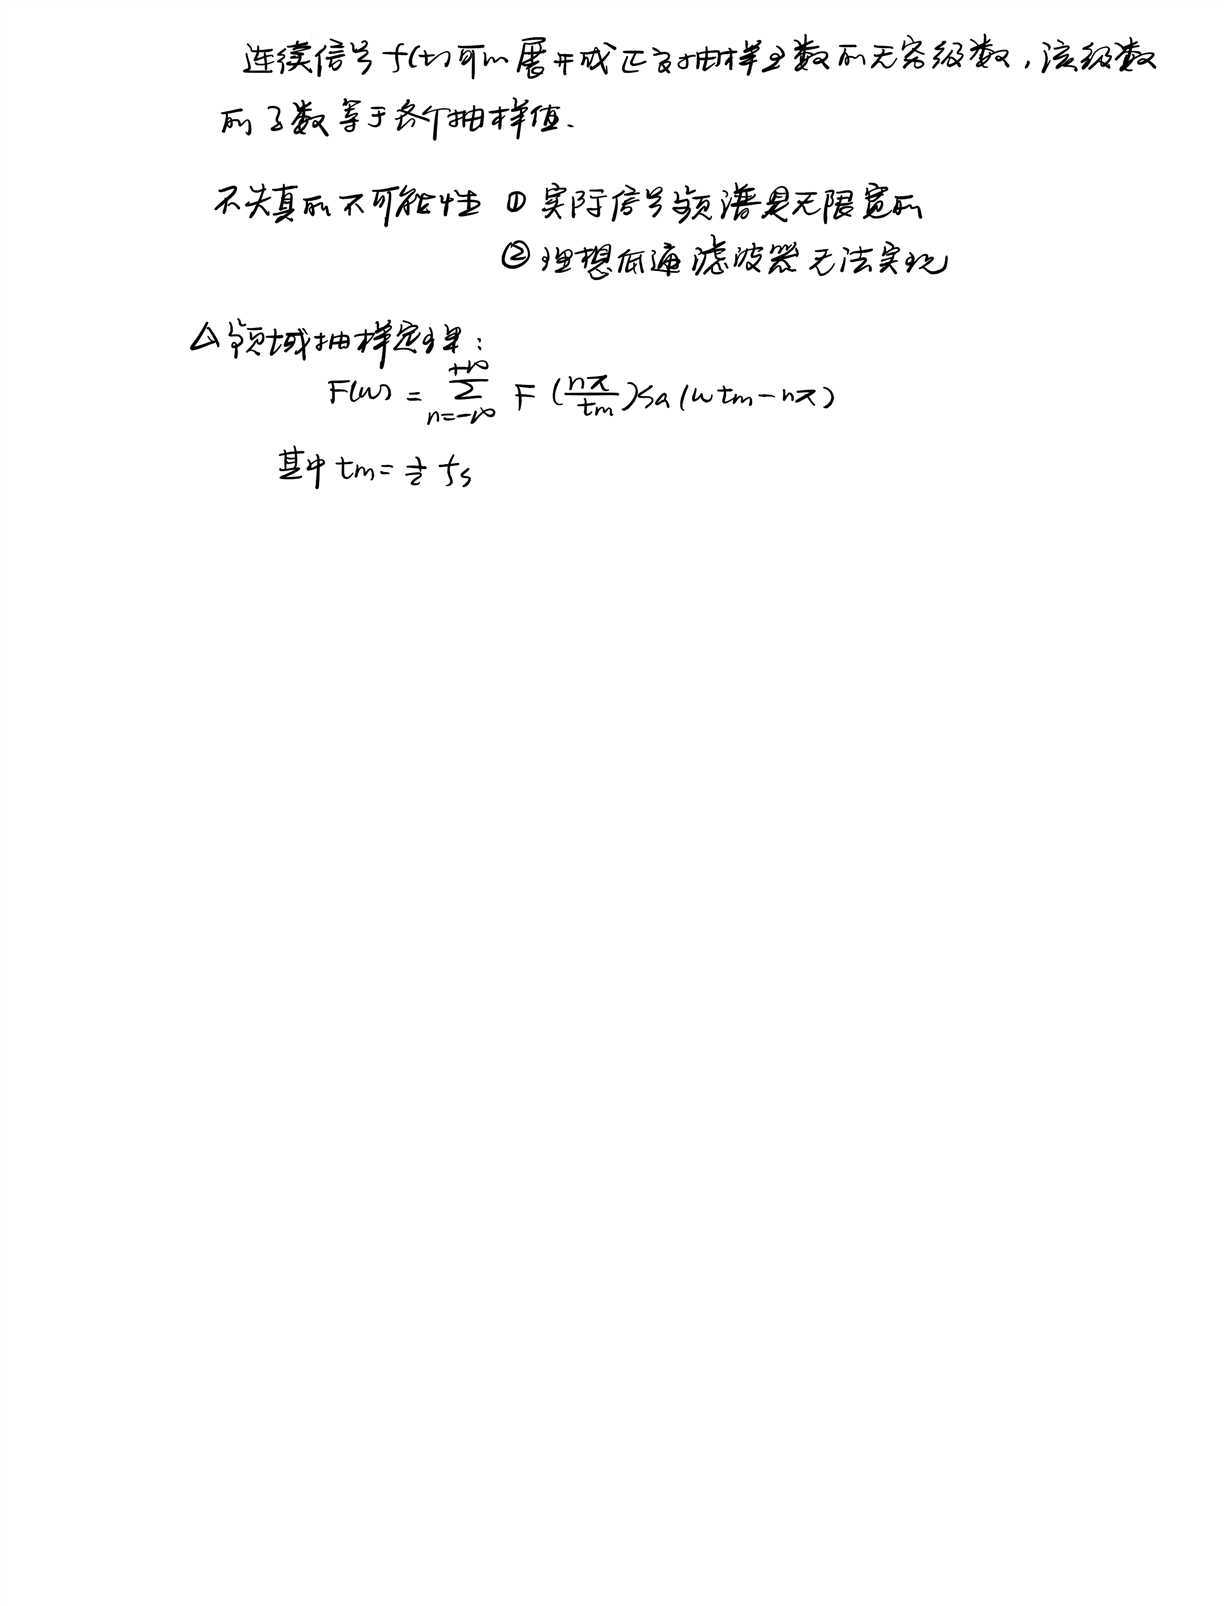 连续信号f(t)可以展开成正交抽样函数的无穷级数,该级数
的系数等于各个抽样值.
不失真的不可能性 ① 实际信号频谱是无限宽的
② 理想低通滤波器无法实现
△频域抽样定理:
F(w) = \sum_{n=-∞}^{+∞} F(\frac{nπ}{tm})Sa(wtm-nπ)
其中 tm = \frac{1}{2} fs